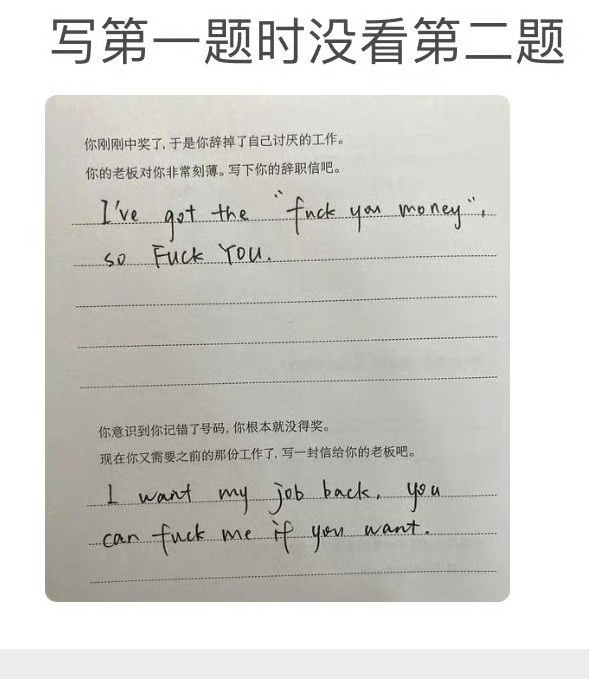 写第一题时没看第二题
你刚刚中奖了,于是你辞掉了自己讨厌的工作。
你的老板对你非常刻薄。写下你的辞职信吧。
I've got the "fuck you money",
so FUCK YOU.
你意识到你记错了号码,你根本就没得奖。
现在你又需要之前的那份工作了,写一封信给你的老板吧。
I want my job back, you
can fuck me if you want.